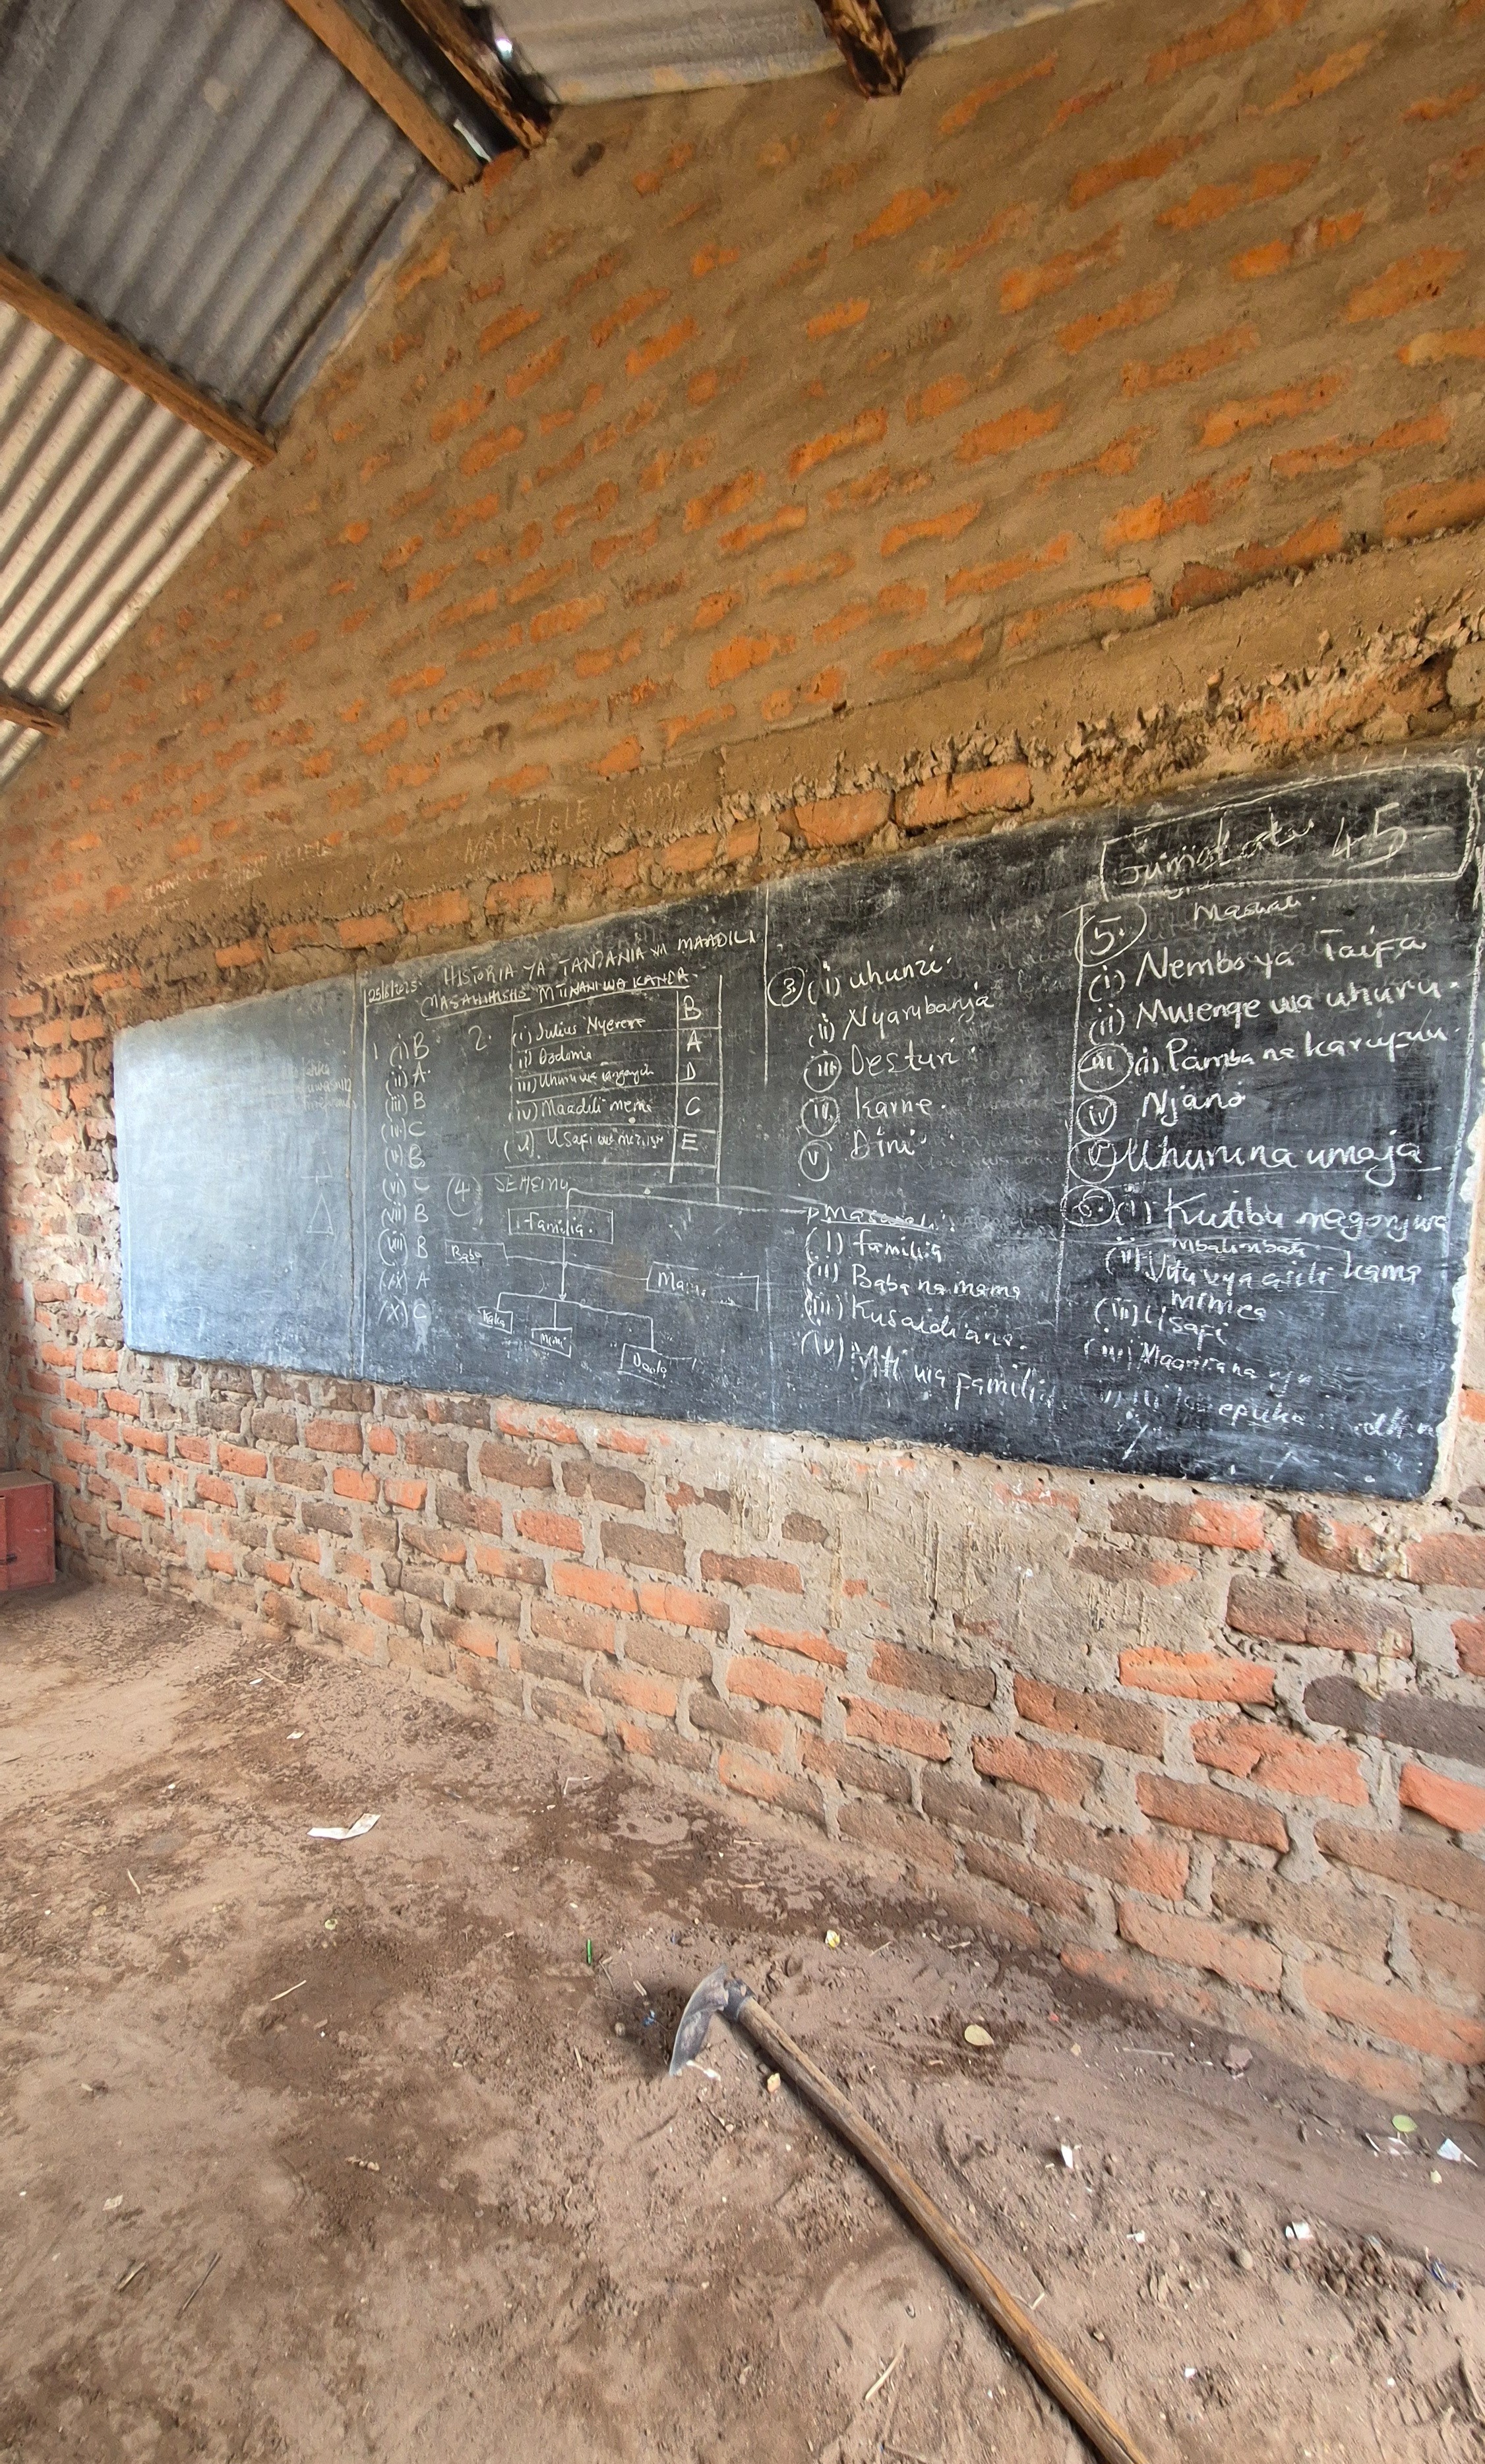 HISTORIA YA TANZANIA NA MAADILI
MASAHIHISHO MTIHANI WA KANDA
1 (i) B
(ii) A
(iii) B
(iv) C
(v) B
(vi) C
(vii) B
(viii) B
(ix) A
(x) C
2.
(i) Julius Nyerere B
ii) Dodoma A
iii) Uhuru wa D
iv) Maadili mema C
(v). Usafi wa E
④ SEHEMU
familia.
Baba
Mama
Kaka
Mimi
Dada
③ (i) uhunzi.
ii) Nyarubanja
iii Desturi
iv. Karne.
v Dini
(i) familia
(ii) Baba na mama
(iii) Kusaidiana.
(iv) Mti wa familia
Jumatatu 45
5. Maswali.
(i) Nembo ya Taifa
(ii) Mwenge wa uhuru.
iii (i) Pamba na karafuu
iv Njano
v Uhuru na umoja
6. (i) Kutibu magonjwa
mbalimbali
(ii) Vitu vya asili kama
mimea
(iii) Usafi
(iv)
epuka